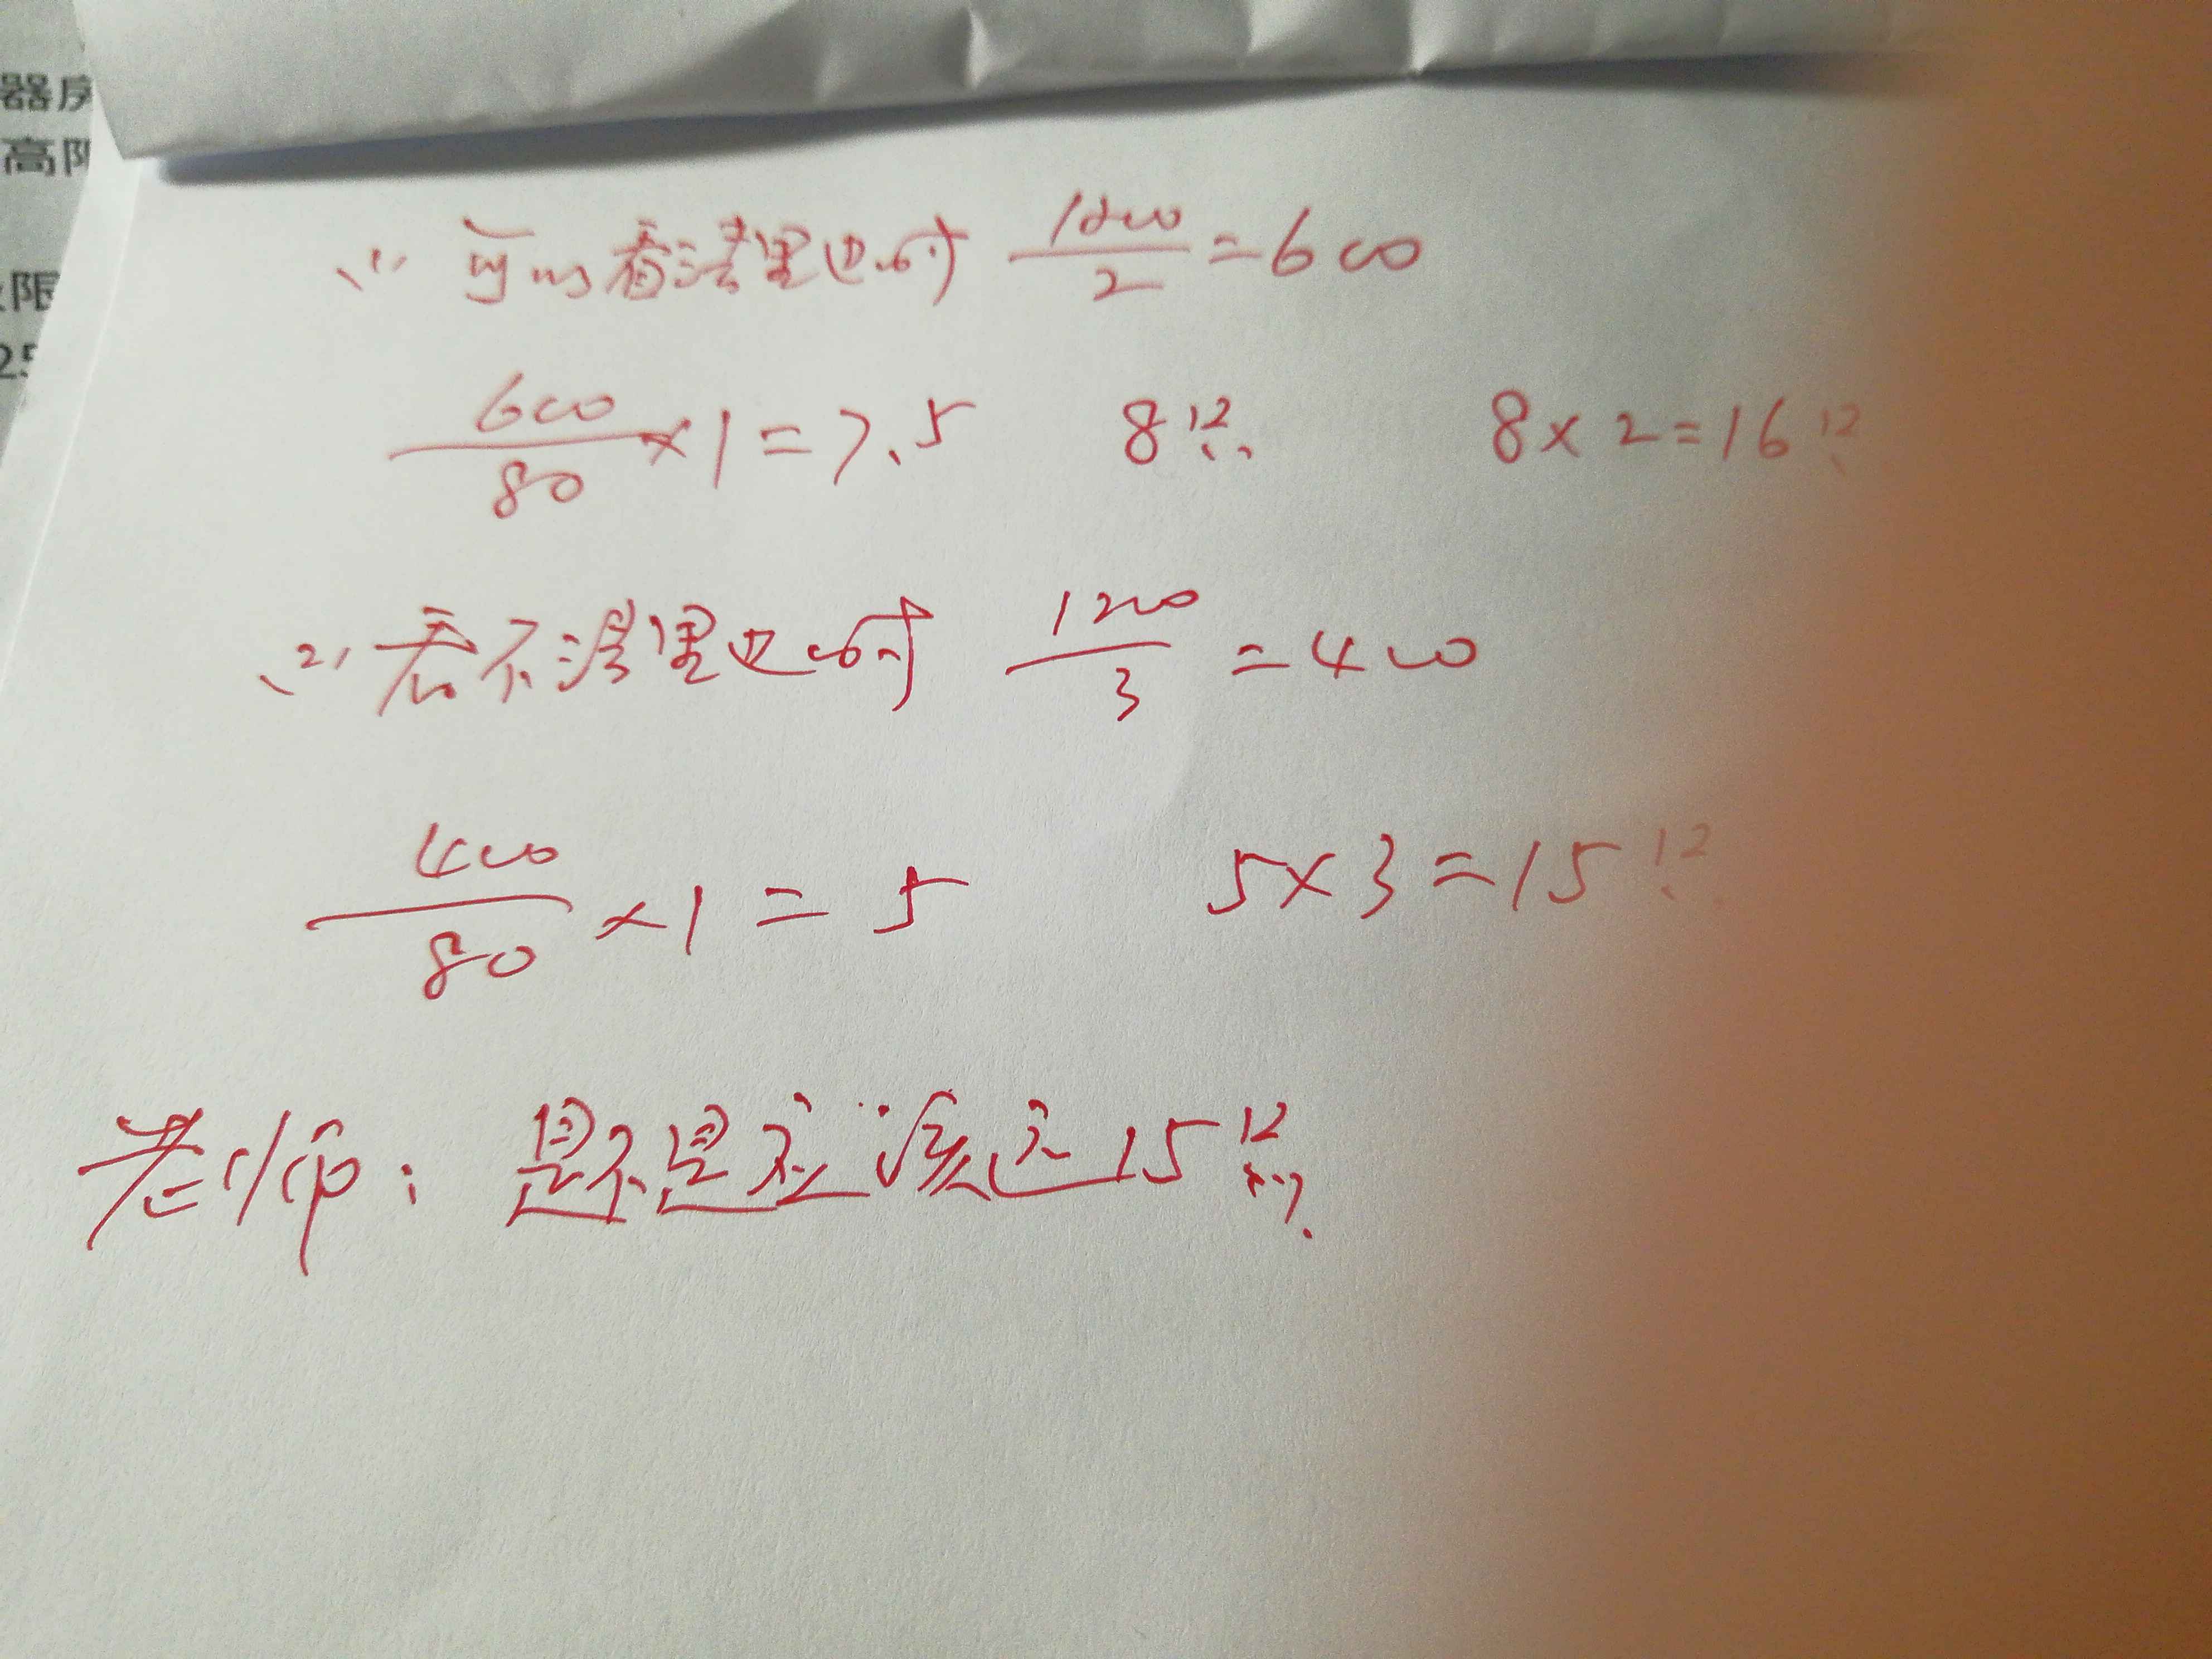 器房
高阳
限
25
(1) 可以看清里边时 1200/2 = 600
600/80 × 1 = 7.5 8只. 8×2=16只
(2) 看不清里边时 1200/3 = 400
400/80 ×1 = 5 5×3=15只.
老师: 是不是应该选15只?